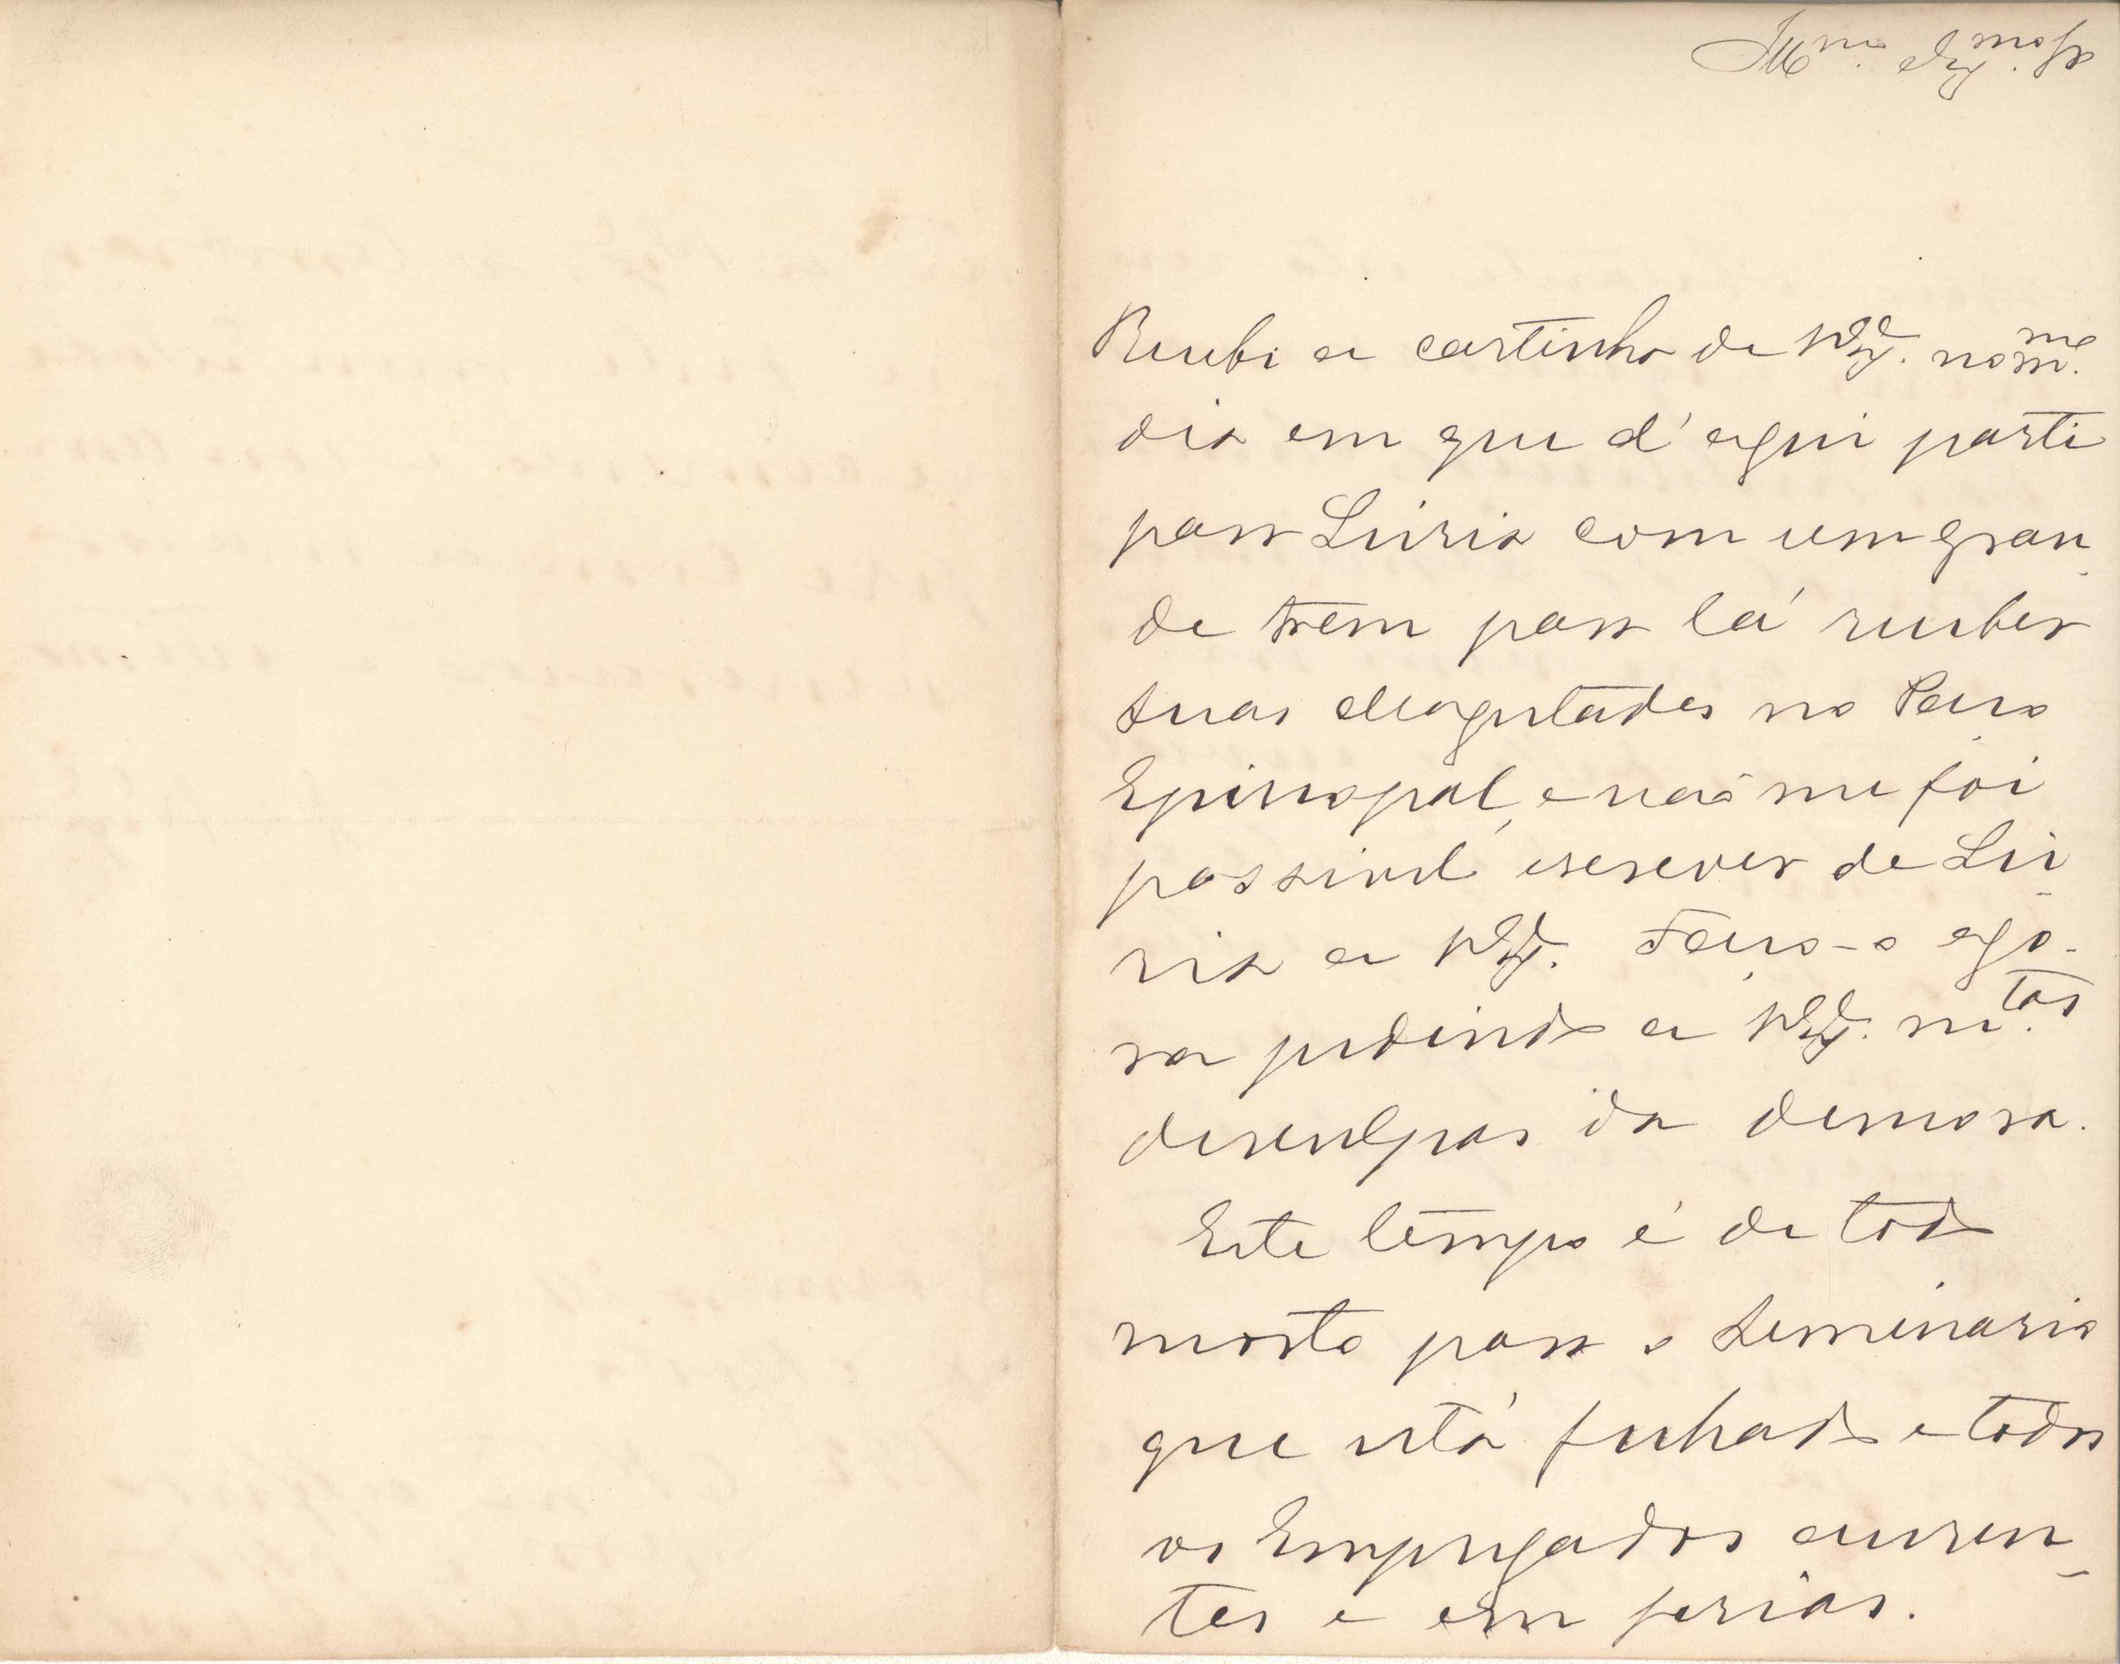 Ill.mo Ex.mo Sr.
Recebi a cartinha de V. Ex.ª no m.mo
dia em que d'aqui parti
para Leiria com um gran-
de trem para lá receber
Suas Magestades no Paço
Episcopal, e não me foi
possivel escrever de Lei-
ria a V. Ex.ª. Faço-o ago-
ra pedindo a V. Ex.ª m.tas
desculpas da demora.
Este tempo é de todo
morto para o Seminario
que está fechado e todos
os Empregados auzen-
tes e em ferias.